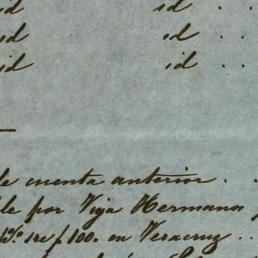 id id . .
id id . .
id id . .
de cuenta anterior . .
de por Viya Hermanos
p 100. en Veracruz . .